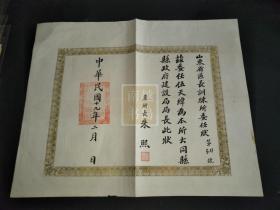 山東省區長訓練所委任狀 第 號
茲委任伍天緯為本所
縣政府建設局局長此狀
兼所長 朱熙
中華民國十九年二月 日